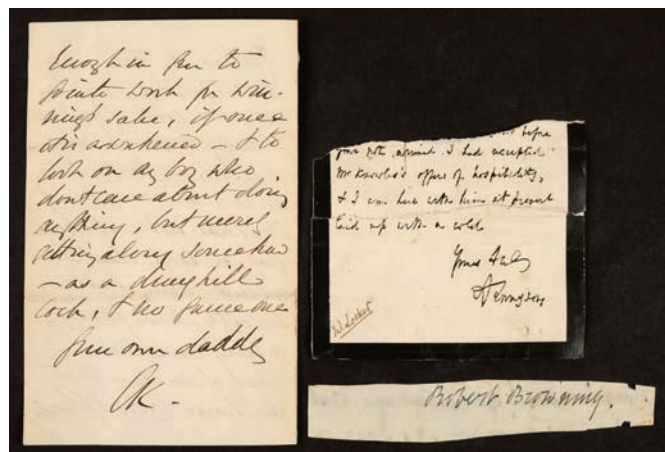 Enough in you to
work for win-
ning's sake, if once
it is awakened - & to
look on any boy who
dont care about doing
anything, but merely
getting along somehow
- as a dunghill
cock, & no game one
Your own daddy
CK -
before
your note arrived I had accepted
Mr Knowles's offer of hospitality,
& I am here with him at present
laid up with a cold.
Yours truly
A Tennyson
Robert Browning.